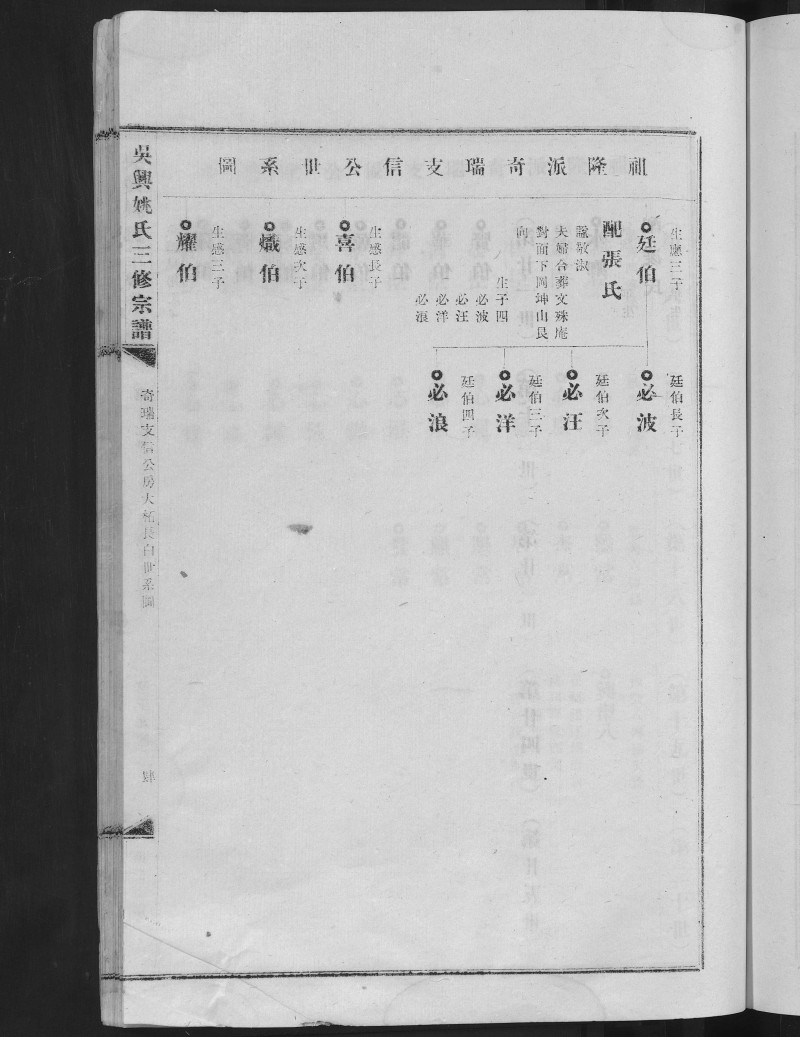 祖隆派奇瑞支信公世系圖
生應三子
廷伯
配張氏
諡敬淑
夫婦合葬文殊庵
對面下岡坤山艮
向
生子四
必波
必汪
必洋
必浪
生感長子
喜伯
生感次子
熾伯
生感三子
耀伯
廷伯長子
必波
廷伯次子
必汪
廷伯三子
必洋
廷伯四子
必浪
吳興姚氏三修宗譜
奇瑞支信公房大柘長白世系圖
肆